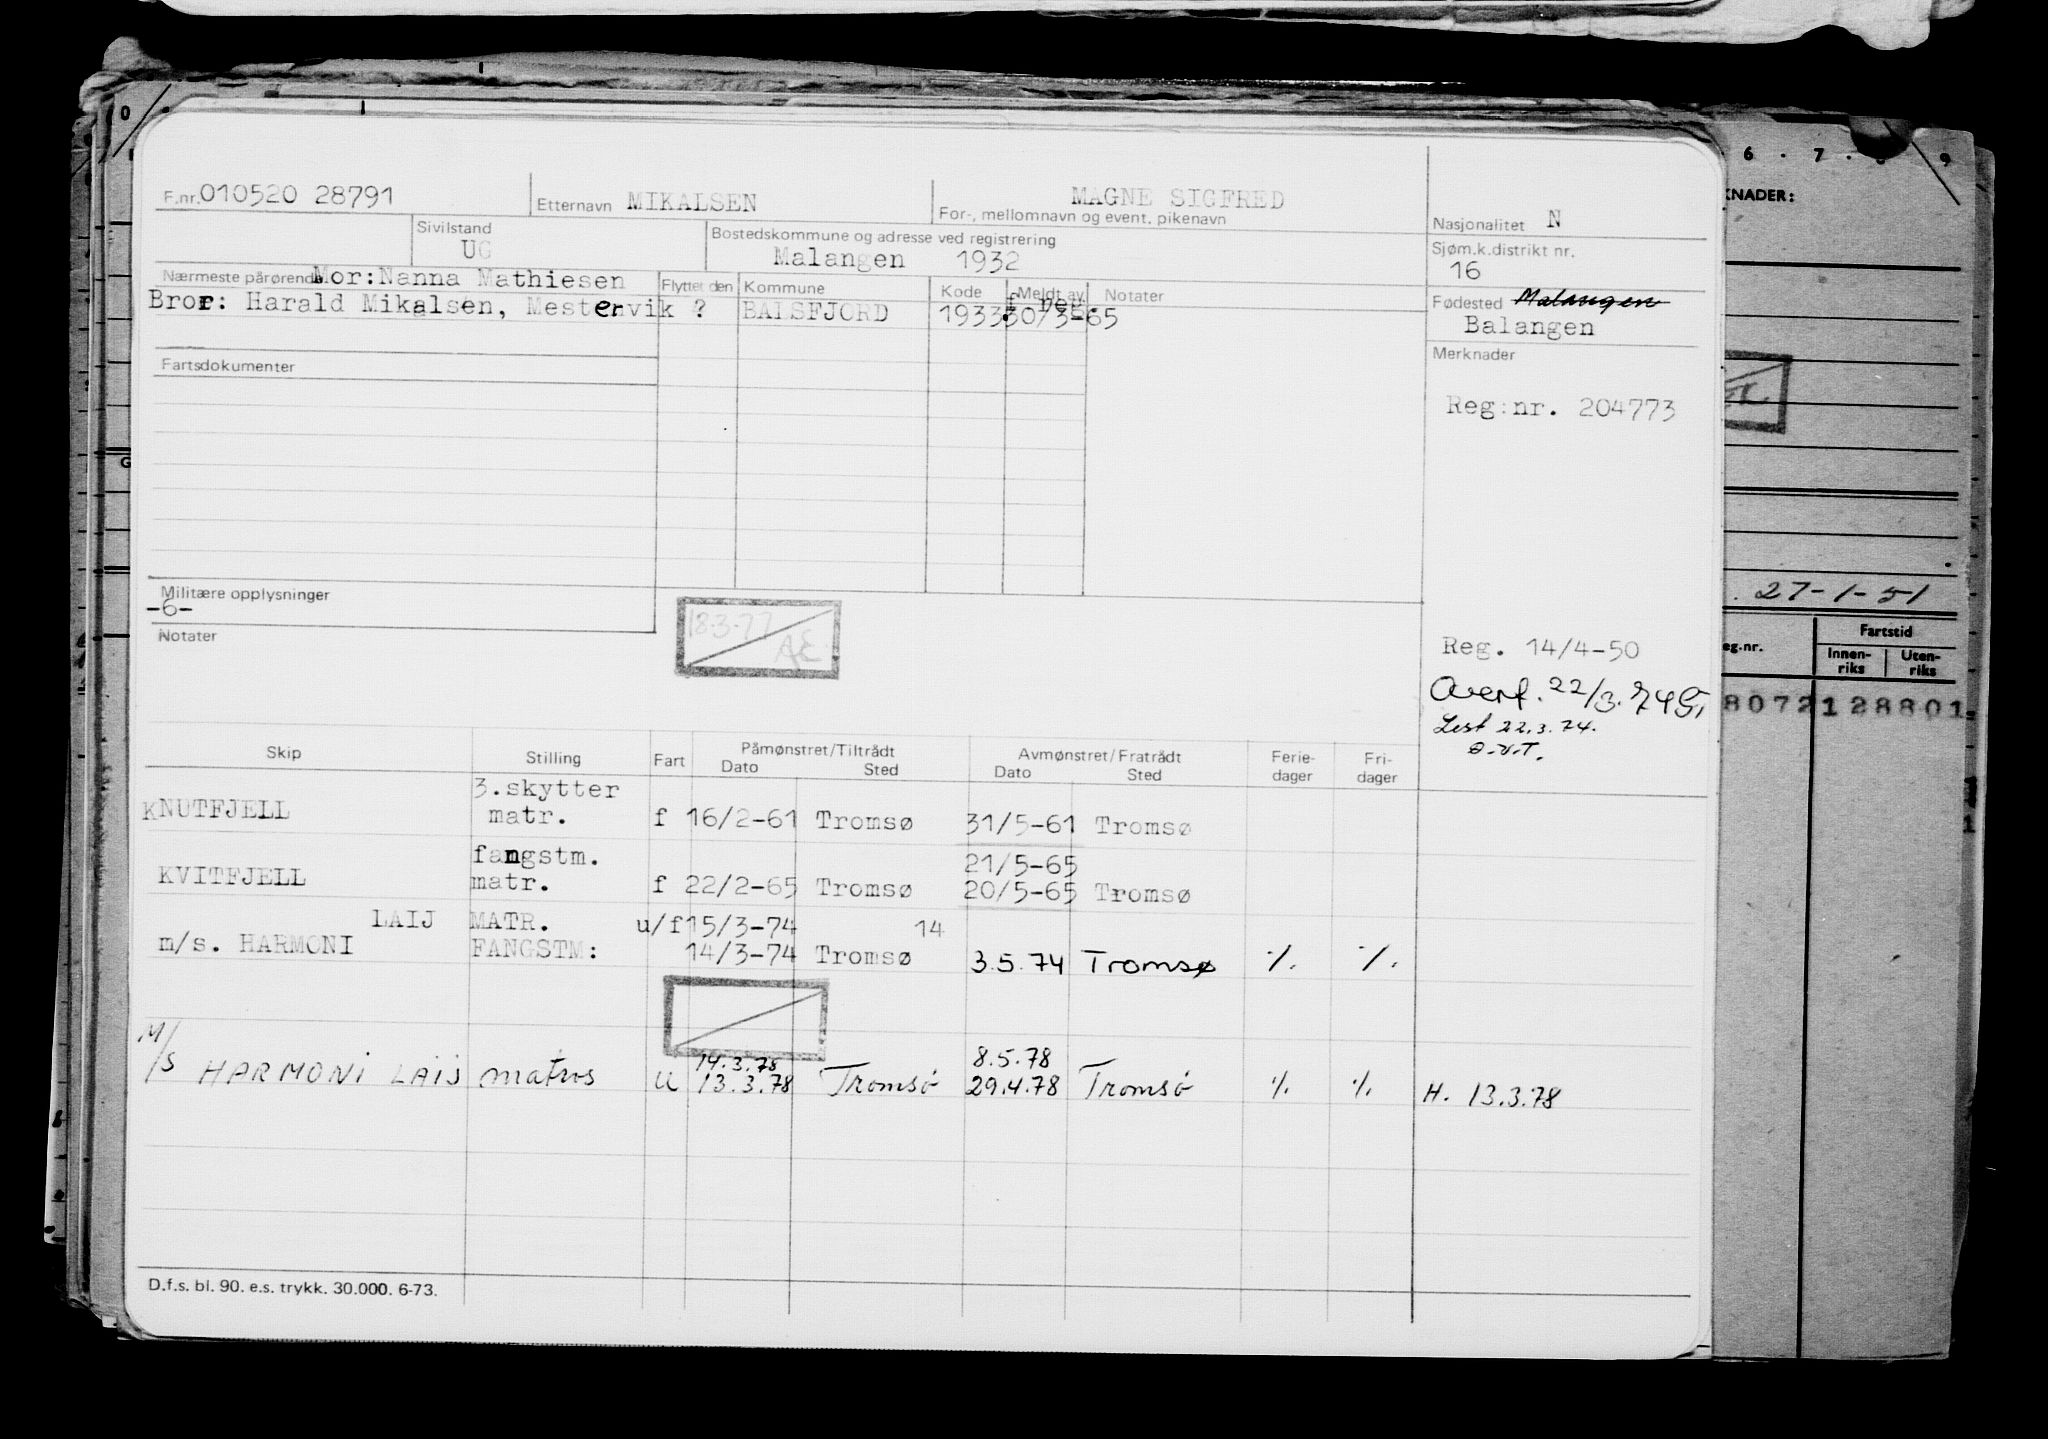 F.nr. 010520 28791
Etternavn MIKALSEN
For-, mellomnavn og event. pikenavn MAGNE SIGFRED
Nasjonalitet N
Sivilstand UG
Bostedskommune og adresse ved registrering
Malangen 1932
Sjøm.k.distrikt nr.
16
Nærmeste pårørende Mor: Nanna Mathiesen
Bror: Harald Mikalsen, Mestervik ?
Flyttet den Kommune Kode Meldt av Notater
f reg.
BALSFJORD 1933 30/3-65
Fødested Malangen
Balangen
Merknader
Fartsdokumenter
Reg.nr. 204773
Militære opplysninger
-6-
Notater
18.3.77
AE
Reg. 14/4-50
Overf. 22/3.74
Lest 22.3.74.
O.V.T.
Skip Stilling Fart Påmønstret/Tiltrådt Dato Sted Avmønstret/Fratrådt Dato Sted Ferie-dager Fri-dager
3.skytter
KNUTFJELL matr. f 16/2-61 Tromsø 31/5-61 Tromsø
fangstm. 21/5-65
KVITFJELL matr. f 22/2-65 Tromsø 20/5-65 Tromsø
LAIJ MATR. u/f 15/3-74 14
m/s. HARMONI FANGSTM: 14/3-74 Tromsø 3.5.74 Tromsø ./. ./.
14.3.78 8.5.78
M/S HARMONI LAIJ matros u 13.3.78 Tromsø 29.4.78 Tromsø ./. ./. H. 13.3.78
D.f.s. bl. 90. e.s. trykk. 30.000. 6-73.
0
G
6 . 7 . 8 . 9
KNADER:
. 27-1-51
eg.nr. Fartstid
Innen-riks Uten-riks
8072128801